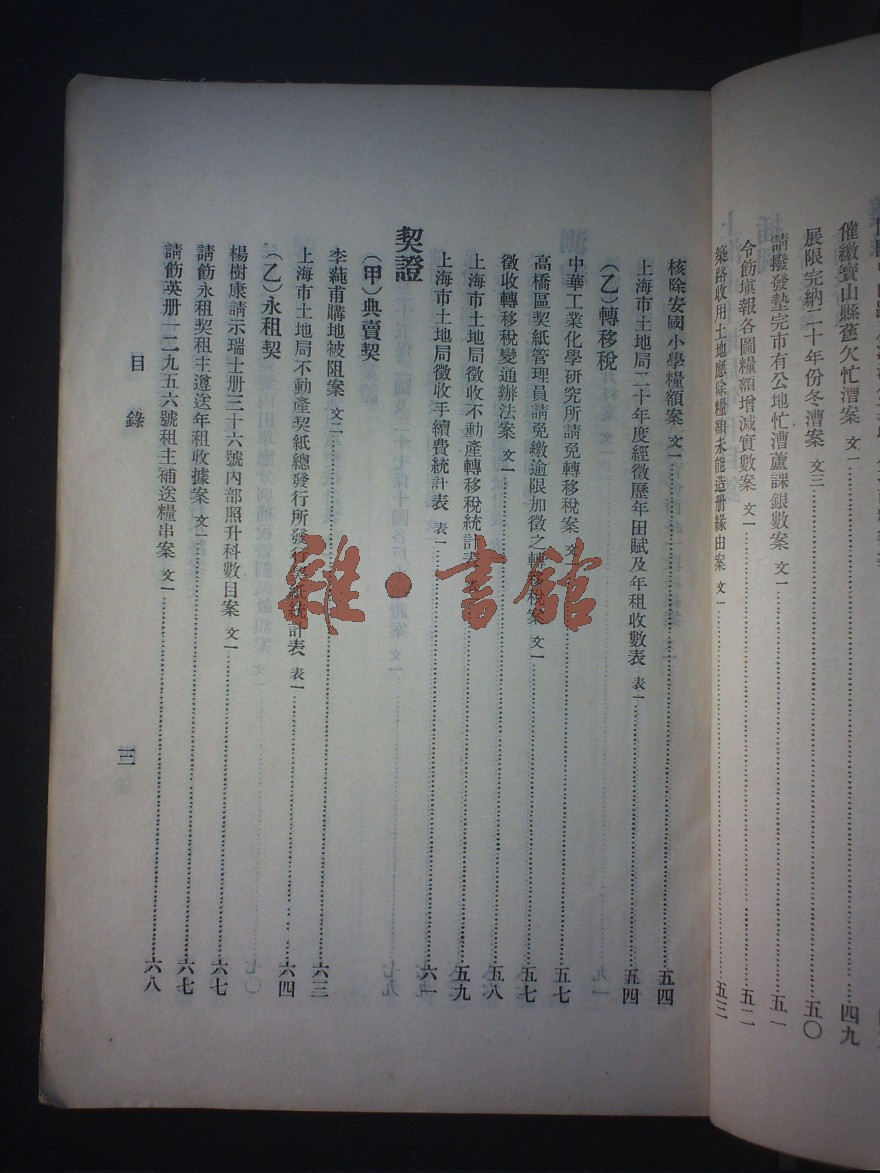 催繳寶山縣舊欠忙漕案 文一 四九
展限完納二十年份冬漕案 文三 五〇
請撥發墊完市有公地忙漕蘆課銀數案 文一 五一
令飭填報各圖糧額增減實數案 文一 五二
築路收用土地應除糧額未能造册緣由案 文一 五三
核除安國小學糧額案 文一 五四
上海市土地局二十年度經徵歷年田賦及年租收數表 表一 五四
(乙)轉移稅
中華工業化學研究所請免轉移稅案 文一 五七
高橋區契紙管理員請免繳逾限加徵之轉移稅案 文一 五七
徵收轉移稅變通辦法案 文一 五八
上海市土地局徵收不動產轉移稅統計表 五九
上海市土地局徵收手續費統計表 表一 六一
契證
(甲)典賣契
李蒓甫購地被阻案 文二 六三
上海市土地局不動產契紙總發行所發行契紙統計表 表一 六四
(乙)永租契
楊樹康請示瑞士册三十六號內部照升科數目案 文一 六七
請飭永租契租主遵送年租收據案 文一 六七
請飭英册一二九五六號租主補送糧串案 文一 六八
目錄
三
雜·書館